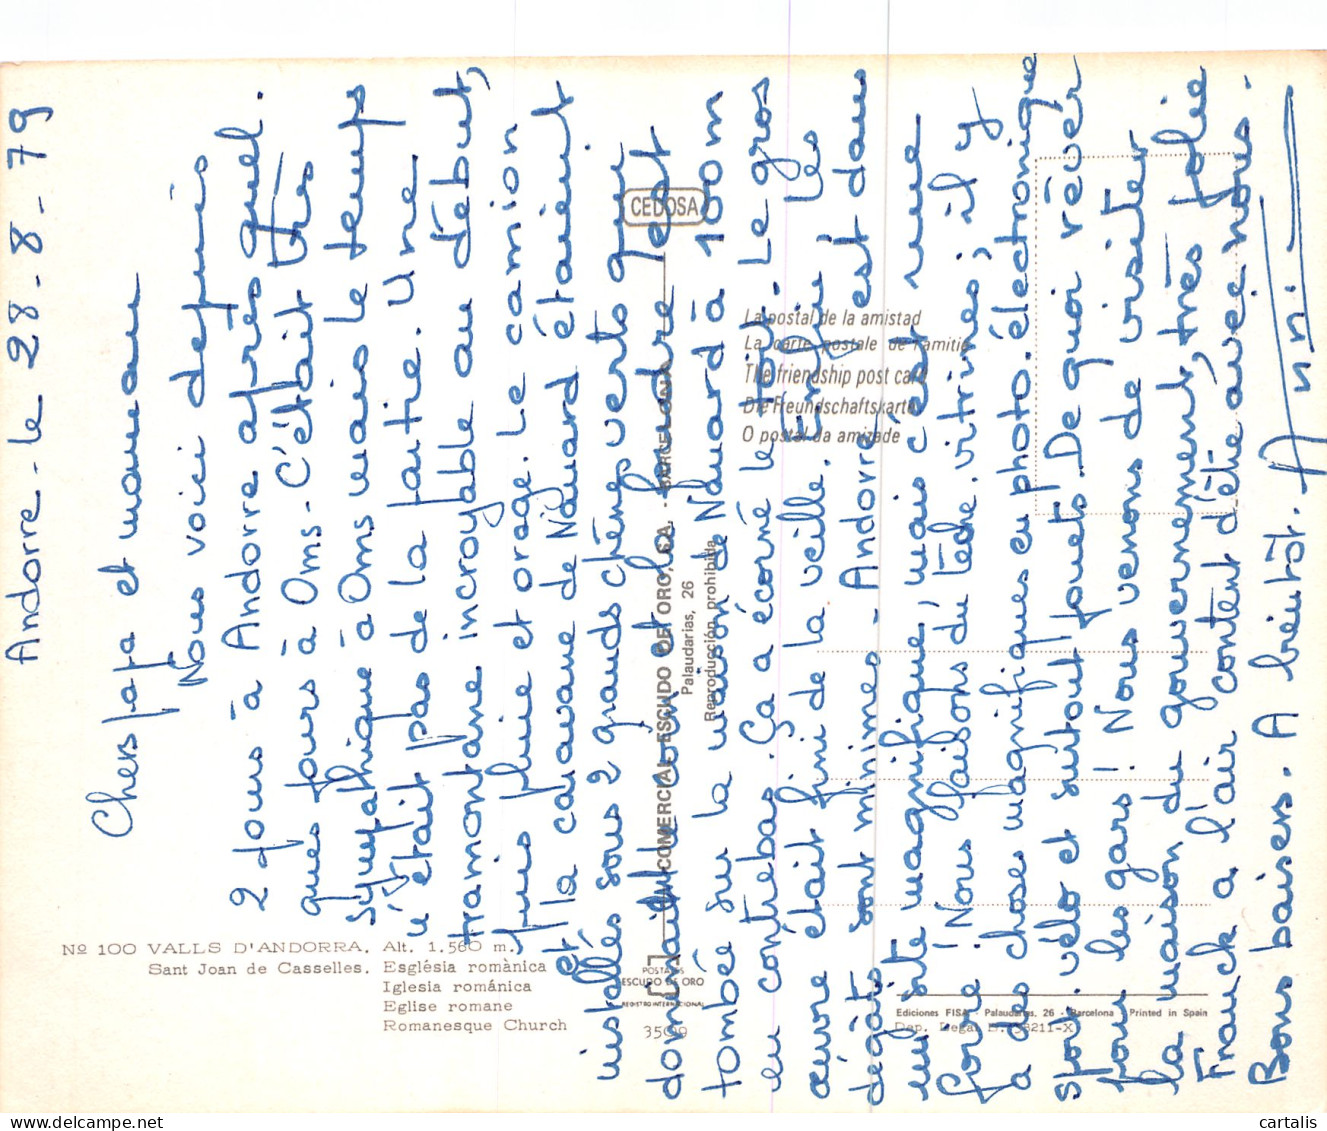 Andorre - le 28-8-79
Chers papa et maman
Nous voici depuis
2 jours à Andorre après quel.
ques jours à Oms - C'était très
sympathique à Oms mais le temps
n'était pas de la partie. Une
tramontane incroyable au début,
puis pluie et orage. Le camion
et la caravane de Nauard étaient
installés sous 2 grands chênes verts qui
dominaient le coin et la foudre est
tombée sur la maison de Nauard à 100 m
en contrebas. Ça a écorné le toit. Le gros
œuvre était fini de la veille. Enfin les
dégâts sont minimes - Andorre est dans
un site magnifique, mais c'est une
foire ! Nous faisons du lèche.vitrines; il y
a des choses magnifiques en photo.électronique
sport. vélo et surtout jouets. De quoi rêver
pour les gars ! Nous venons de visiter
la maison du gouvernement, très jolie
Franck a l'air content d'être avec nous.
Bons baisers. A bientôt. Anni
Nº 100 VALLS D'ANDORRA. Alt. 1.560 m.
Sant Joan de Casselles. Església romànica
Iglesia románica
Eglise romane
Romanesque Church
CEDOSA
COMERCIAL ESCUDO DE ORO, S.A. - BARCELONA
Palaudarias, 26
Reproducción prohibida
La postal de la amistad
La carte postale de l'amitié
The friendship post card
Die Freundschaftskarte
O postal da amizade
POSTALES
ESCUDO DE ORO
REGISTRO INTERNACIONAL
Ediciones FISA - Palaudarias, 26 - Barcelona Printed in Spain
cartalis